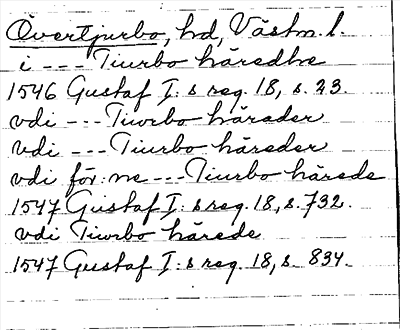 Övertjurbo, hd, Västm. l.
i --- Tiurbo häredhe
1546 Gustaf I:s reg. 18, s. 23.
vdi --- Tiwrbo härader
vdi --- Tiurbo häreder
vdi för:ne --- Tiurbo härede
1547 Gustaf I:s reg. 18, s. 732.
vdi Tiwrbo härede
1547 Gustaf I:s reg. 18, s. 834.